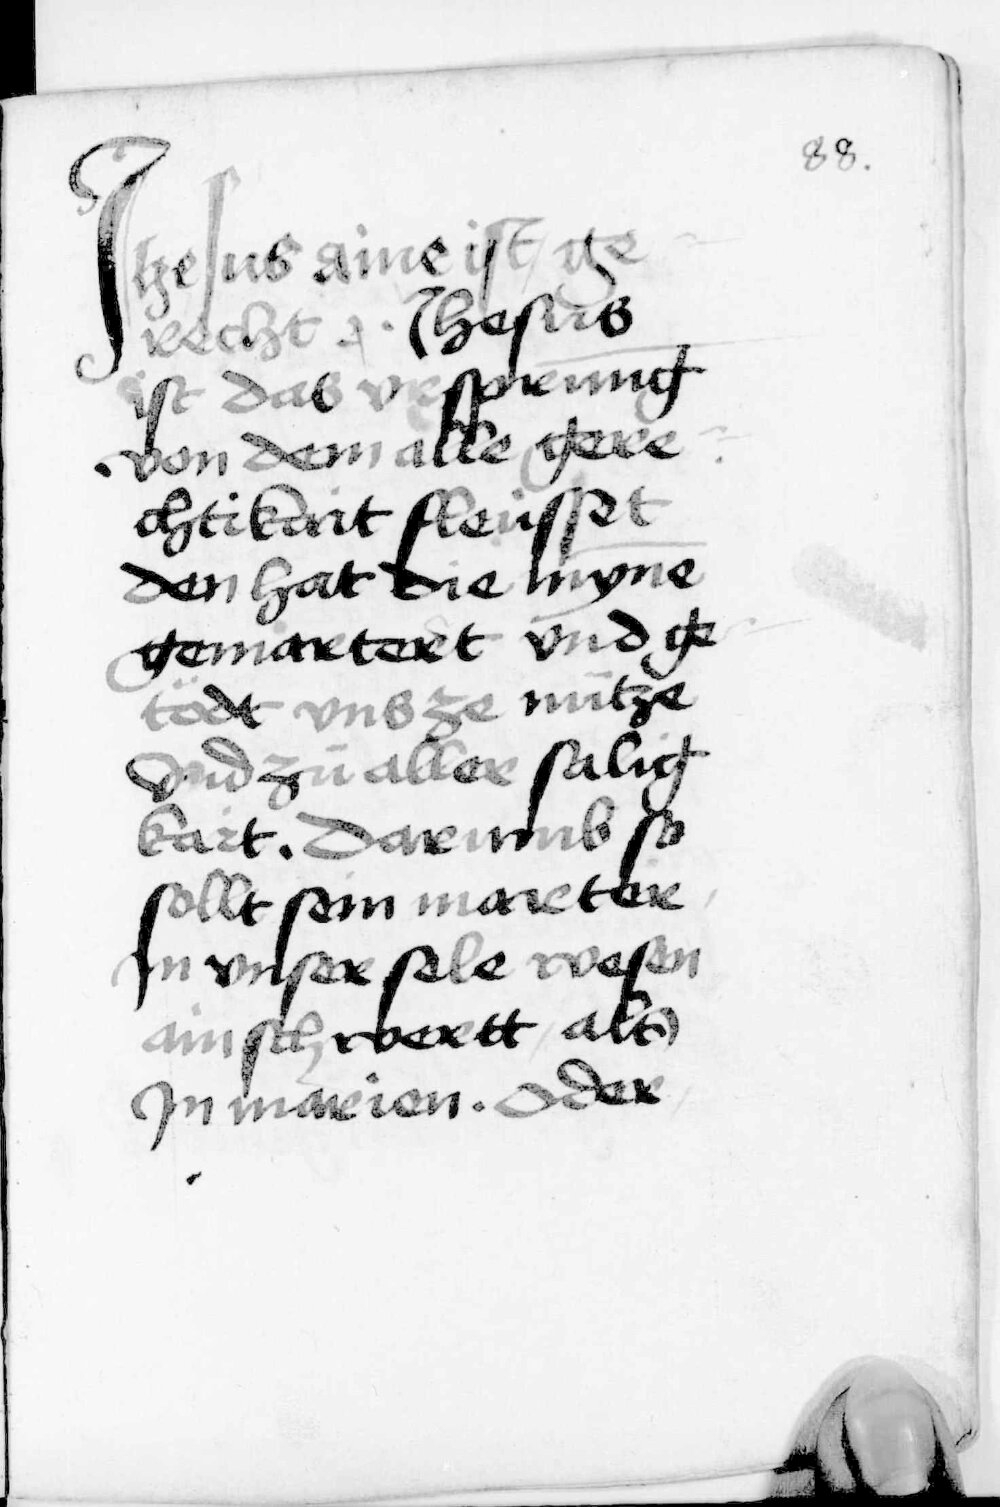 88.
Jhesus aine ist ge
recht ꝛ. Jhesus
ist das vrsprung
von dem alle gere
chtikait fleüsset
den hat die myne
gemartert vnd ge
tödt vns ze nütze
vnd zů aller salig
kait. Darumb so
sollt sein marter
In vnser sele wesen
ain schwertt als
In marien. oder